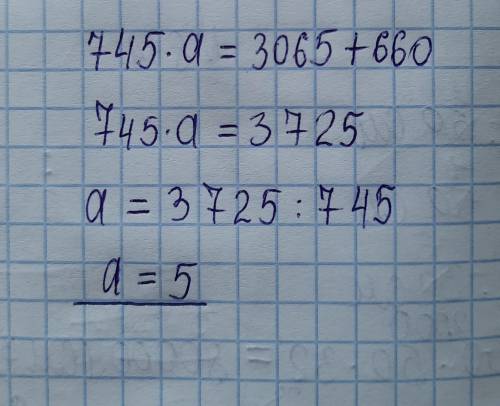 745·a = 3065+660
745·a = 3725
a = 3725:745
a = 5